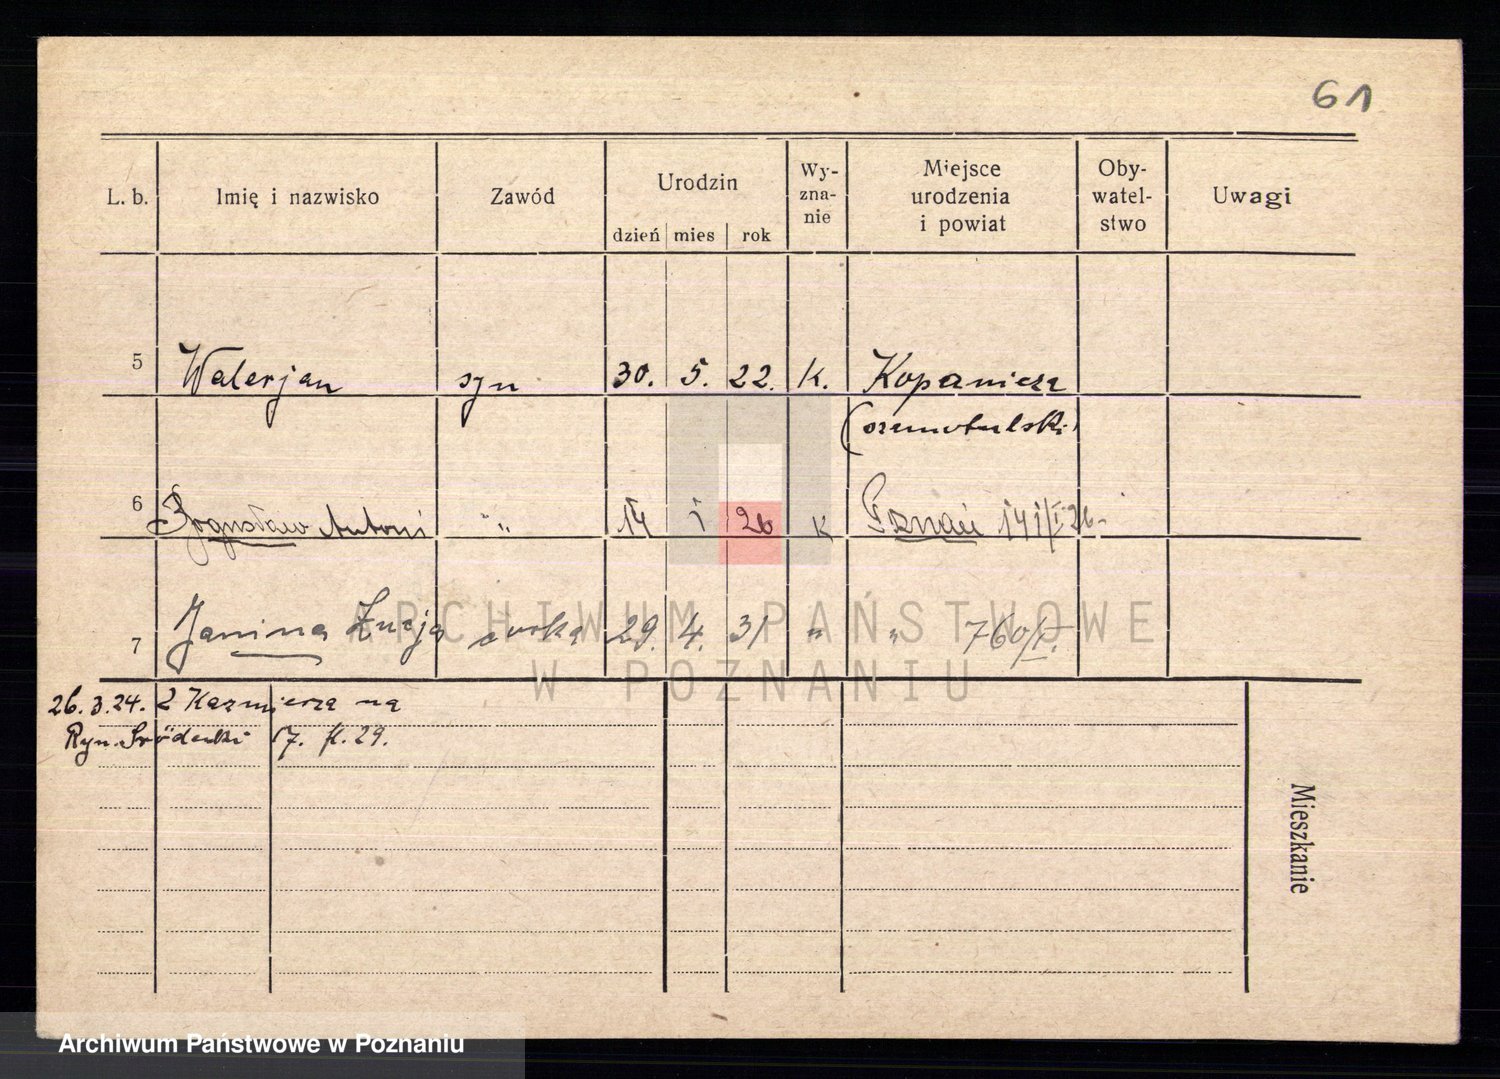 61
L. b. Imię i nazwisko Zawód Urodzin Wy- Miejsce Oby- Uwagi
zna- urodzenia watel-
dzień mies rok nie i powiat stwo
5 Walerjan syn 30. 5. 22. K. Kopanicza
(szamotulski)
6 Bogusław Antoni " " 14 1 26 K Poznań 141/I 26.
7 Janina Łucja córka 29. 4. 31 " " 760/I.
ARCHIWUM PAŃSTWOWE
W POZNANIU
26.3.24. Z Kazmierza na
Ryn. Śródecki 17. fl. 29.
Mieszkanie
Archiwum Państwowe w Poznaniu